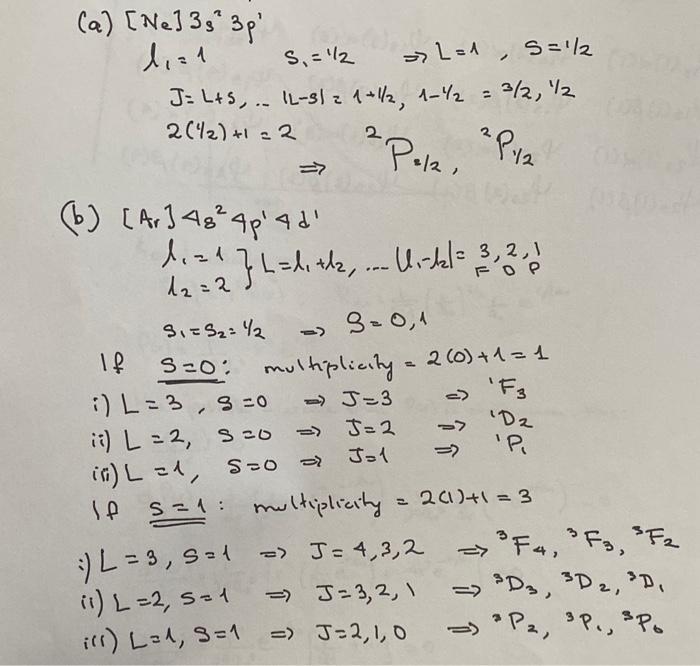 (a) [Ne] 3s² 3p¹
l₁ = 1 s₁ = 1/2 ⇒ L = 1 , S = 1/2
J = L+S, .. |L-S| = 1+1/2, 1-1/2 = 3/2, 1/2
2(1/2)+1 = 2
⇒ ²P₃/₂, ²P₁/₂
(b) [Ar] 4s² 4p¹ 4d¹
l₁ = 1
l₂ = 2 } L = l₁+l₂, ... |l₁-l₂| = 3, 2, 1
F D P
s₁ = s₂ = 1/2 ⇒ S = 0, 1
If S=0: multiplicity = 2(0)+1 = 1
i) L = 3, S=0 ⇒ J=3 ⇒ ¹F₃
ii) L = 2, S=0 ⇒ J=2 ⇒ ¹D₂
iii) L = 1, S=0 ⇒ J=1 ⇒ ¹P₁
If S=1: multiplicity = 2(1)+1 = 3
i) L = 3, S=1 ⇒ J = 4,3,2 ⇒ ³F₄, ³F₃, ³F₂
ii) L=2, S=1 ⇒ J=3,2,1 ⇒ ³D₃, ³D₂, ³D₁
iii) L=1, S=1 ⇒ J=2,1,0 ⇒ ³P₂, ³P₁, ³P₀